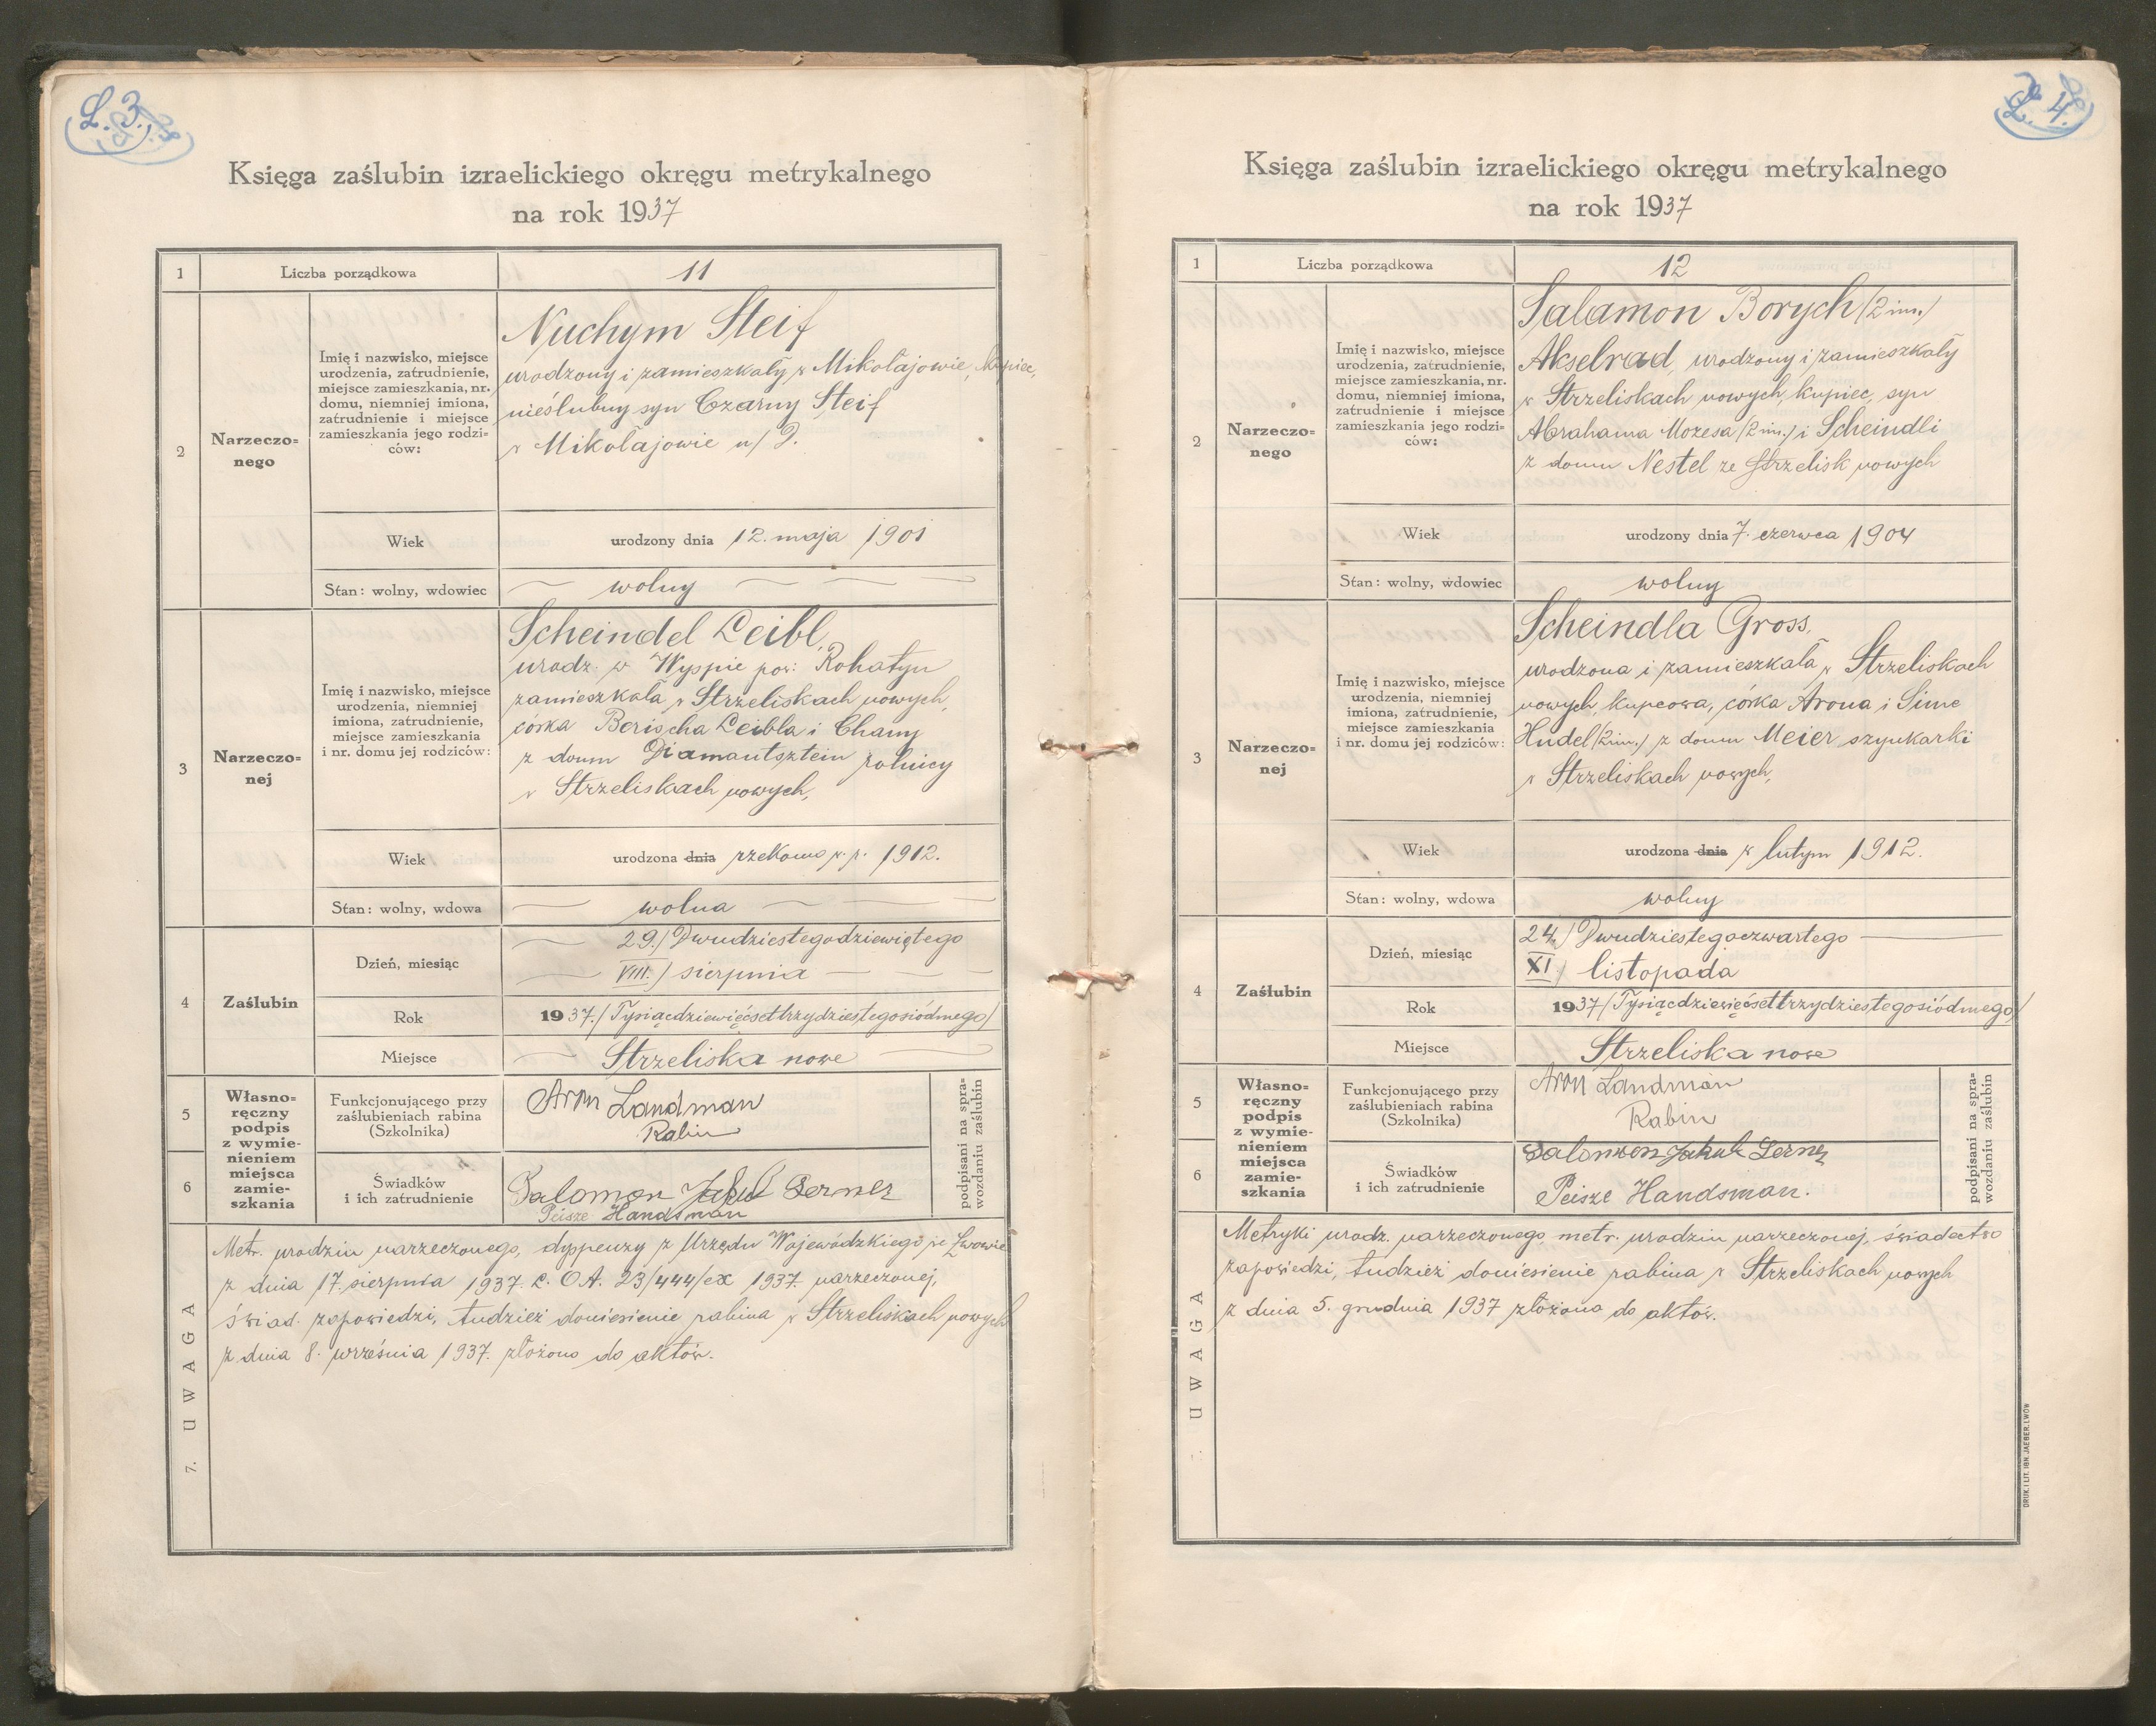 L. 3.
Księga zaślubin izraelickiego okręgu metrykalnego
na rok 1937
1 Liczba porządkowa 11
2 Narzeczo=
nego
Imię i nazwisko, miejsce
urodzenia, zatrudnienie,
miejsce zamieszkania, nr.
domu, niemniej imiona,
zatrudnienie i miejsce
zamieszkania jego rodzi=
ców:
Nuchym Steif
urodzony i zamieszkały w Mikołajowie, kupiec,
nieślubny syn Czarny Steif
w Mikołajowie n/D.
Wiek urodzony dnia 12. maja 1901
Stan: wolny, wdowiec wolny
3 Narzeczo=
nej
Imię i nazwisko, miejsce
urodzenia, niemniej
imiona, zatrudnienie,
miejsce zamieszkania
i nr. domu jej rodziców:
Scheindel Leibl,
urodz. w Wyspie pow: Rohatyn
zamieszkała w Strzeliskach nowych,
córka Berischa Leibla i Chany
z domu Diamantsztein rolnicy
w Strzeliskach nowych,
Wiek urodzona dnia rzekomo w r. 1912.
Stan: wolny, wdowa wolna
4 Zaślubin
Dzień, miesiąc 29./ Dwudziestegodziewiętego
VIII./ sierpnia
Rok 1937./ Tysiącdziewięćsettrzydziestegosiódmego/
Miejsce Strzeliska nowe
5
6
Własno=
ręczny
podpis
z wymie-
nieniem
miejsca
zamie=
szkania
Funkcjonującego przy
zaślubieniach rabina
(Szkolnika)
Aron Landman
Rabin
Świadków
i ich zatrudnienie
Salomon Jakub Lerner
Peisze Handsman
podpisani na spra=
wozdaniu zaślubin
7. UWAGA
Metr. urodzin narzeczonego, dyspenzy z Urzędu Wojewódzkiego we Lwowie
z dnia 17. sierpnia 1937. L. OA. 23/444/ex 1937. narzeczonej,
świad. zapowiedzi, tudzież doniesienie rabina w Strzeliskach nowych
z dnia 8. września 1937. złożono do aktów.
L. 4.
Księga zaślubin izraelickiego okręgu metrykalnego
na rok 1937
1 Liczba porządkowa 12
2 Narzeczo=
nego
Imię i nazwisko, miejsce
urodzenia, zatrudnienie,
miejsce zamieszkania, nr.
domu, niemniej imiona,
zatrudnienie i miejsce
zamieszkania jego rodzi=
ców:
Salamon Borych /2 im./
Akselrad, urodzony i zamieszkały
w Strzeliskach nowych, kupiec, syn
Abrahama Mozesa /2 im./ i Scheindli
z domu Nestel ze Strzelisk nowych
Wiek urodzony dnia 7. czerwca 1904
Stan: wolny, wdowiec wolny
3 Narzeczo=
nej
Imię i nazwisko, miejsce
urodzenia, niemniej
imiona, zatrudnienie,
miejsce zamieszkania
i nr. domu jej rodziców:
Scheindla Gross,
urodzona i zamieszkała w Strzeliskach
nowych, kupcowa, córka Arona i Sime
Hudel /2 im./ z domu Meier szynkarki
w Strzeliskach nowych,
Wiek urodzona dnia w lutym 1912.
Stan: wolny, wdowa wolny
4 Zaślubin
Dzień, miesiąc 24./ Dwudziestegoczwartego
XI./ listopada
Rok 1937/ Tysiącdziewięćsettrzydziestegosiódmego/
Miejsce Strzeliska nowe
5
6
Własno=
ręczny
podpis
z wymie-
nieniem
miejsca
zamie=
szkania
Funkcjonującego przy
zaślubieniach rabina
(Szkolnika)
Aron Landman
Rabin
Świadków
i ich zatrudnienie
Salomon Jakub Lerner
Peisze Handsman.
podpisani na spra=
wozdaniu zaślubin
UWAGA
Metryki urodz. narzeczonego, metr. urodzin narzeczonej, świadectwo
zapowiedzi, tudzież doniesienie rabina w Strzeliskach nowych
z dnia 5. grudnia 1937 złożono do aktów.
DRUK. I LIT. IGN. JAEGER, LWÓW